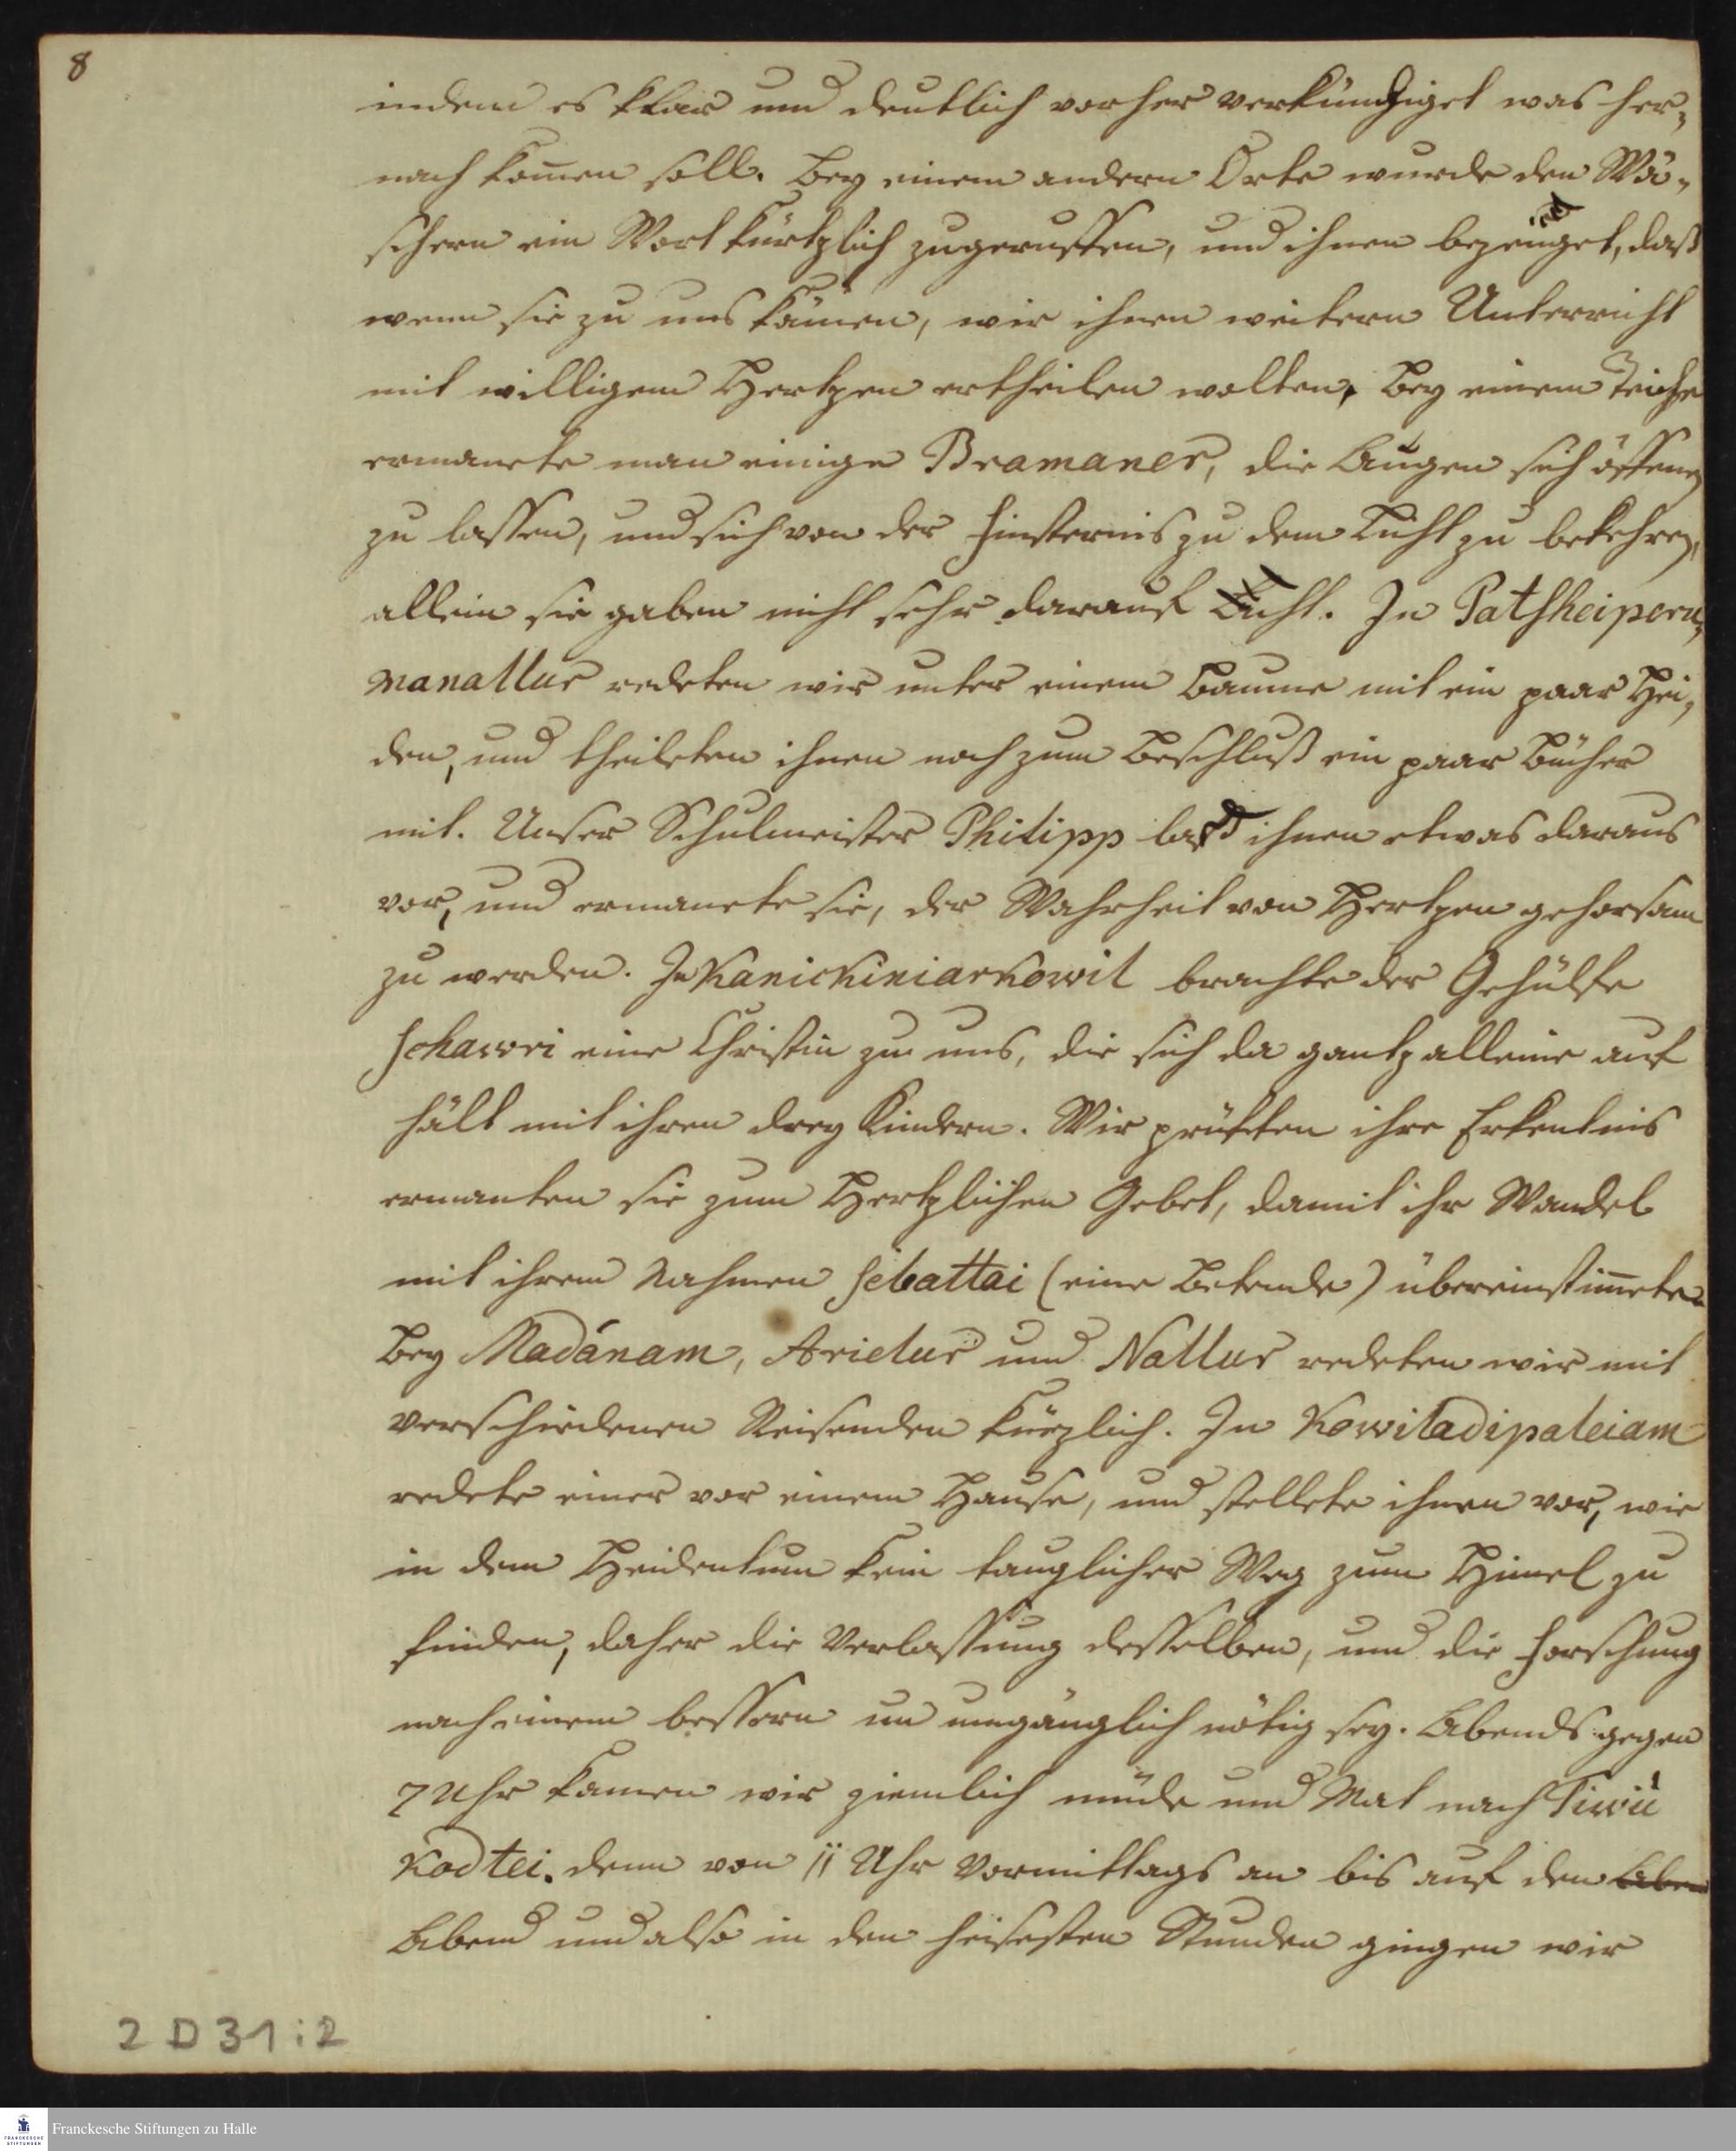 8
indem es klar und deutlich vorher verkündiget was her-
nach kom̄en soll. Bey einem andern Orte wurde den Wä-
schern ein Wort kürtzlich zugeruffen, und ihnen bezeuget, daß
wenn sie zu uns kämen, wir ihnen weitern Unterricht
mit willigem Hertzen ertheilen wolten. Bey einem Teiche
ermanete man einige Bramaner, die Augen sich öffnen
zu lassen, und sich von der Finsternis zu dem Licht zu bekehren,
allein sie gaben nicht sehr darauf Acht. In Patsheiperu-
manallur redeten wir unter einem Baume mit ein paar Hei-
den, und theileten ihnen noch zum Beschluß ein paar Bücher
mit. Unser Schulmeister Philipp laß ihnen etwas daraus
vor, und ermanete sie, der Wahrheit von Hertzen gehorsam
zu werden. In Kanickiniarkowil brachte der Gehülfe
Schawri eine Christin zu uns, die sich da gantz alleine auf
hält mit ihren drey Kindern. Wir prüften ihre Erkentnis
ermanten sie zum Hertzlichen Gebet, damit ihr Wandel
mit ihrem Nahmen Sebattai (eine Betende) übereinstim̄ete.
Bey Madánam, Arielur und Nallur redeten wir mit
verschiedenen Reisenden kürzlich. In Kowiladipaleiam
redete einer vor einem Hause, und stellete ihnen vor, wie
in dem Heidentum kein tauglicher Weg zum Him̄el zu
finden, daher die Verlassung desselben, und die Forschung
nach einem bessern un umgänglich nötig sey. Abends gegen
7 Uhr kamen wir ziemlich müde und Mat nach Tiruü
Kodtei. denn von 11 Uhr Vormittags an bis auf den Aben
Abend und also in den heisesten Stunden gingen wir
2 D 31:2
FRANCKESCHE STIFTUNGEN
Franckesche Stiftungen zu Halle